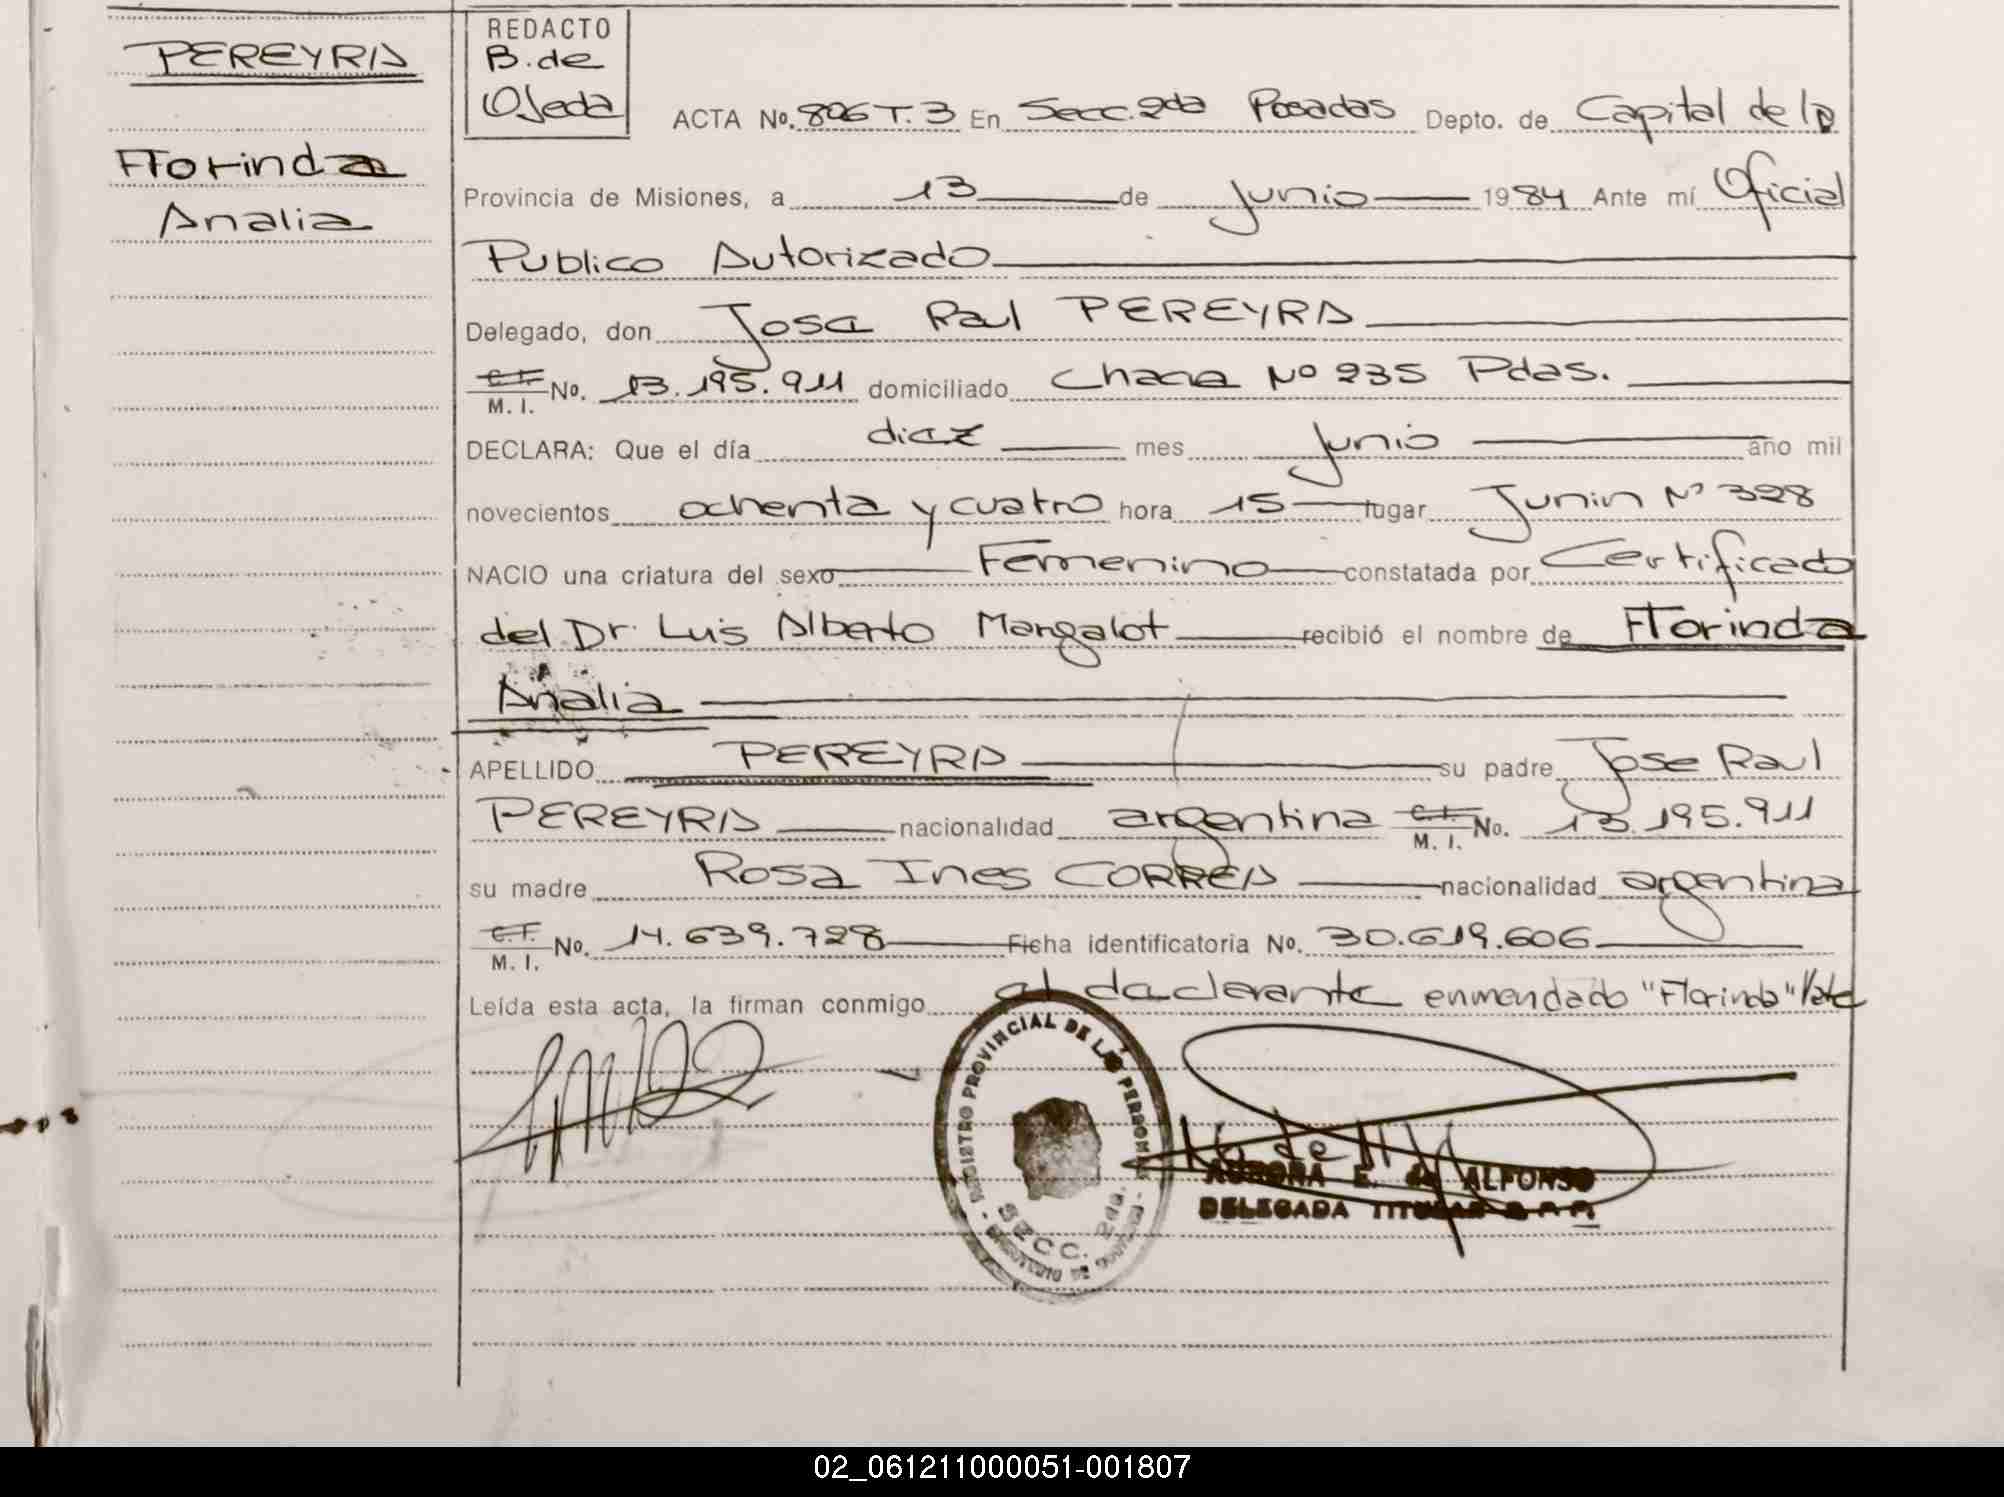 PEREYRA
Florinda
Analia
REDACTO
B. de
Ojeda
ACTA No. 806 T. 3 En Secc. 2da Posadas Depto. de Capital de la
Provincia de Misiones, a 13 de Junio 1984 Ante mí Oficial
Publico Autorizado
Delegado, don Jose Raul PEREYRA
C.I. M. I. No. 13.195.911 domiciliado Chacra No 235 Pdas.
DECLARA: Que el día diez mes Junio año mil
novecientos ochenta y cuatro hora 15 lugar Junin No 328
NACIO una criatura del sexo Femenino constatada por Certificado
del Dr. Luis Alberto Mangalot recibió el nombre de Florinda
Analia
APELLIDO PEREYRA su padre Jose Raul
PEREYRA nacionalidad argentina C.I. M. I. No. 13.195.911
su madre Rosa Ines CORREA nacionalidad argentina
C.I. M. I. No. 14.639.728 Ficha identificatoria No. 30.619.606
Leída esta acta, la firman conmigo el declarante enmendado "Florinda" Vale
REGISTRO PROVINCIAL DE LAS PERSONAS
SECC. 2da.
AURORA E. de ALFONSO
DELEGADA TITULAR R.P.P.
02_061211000051-001807